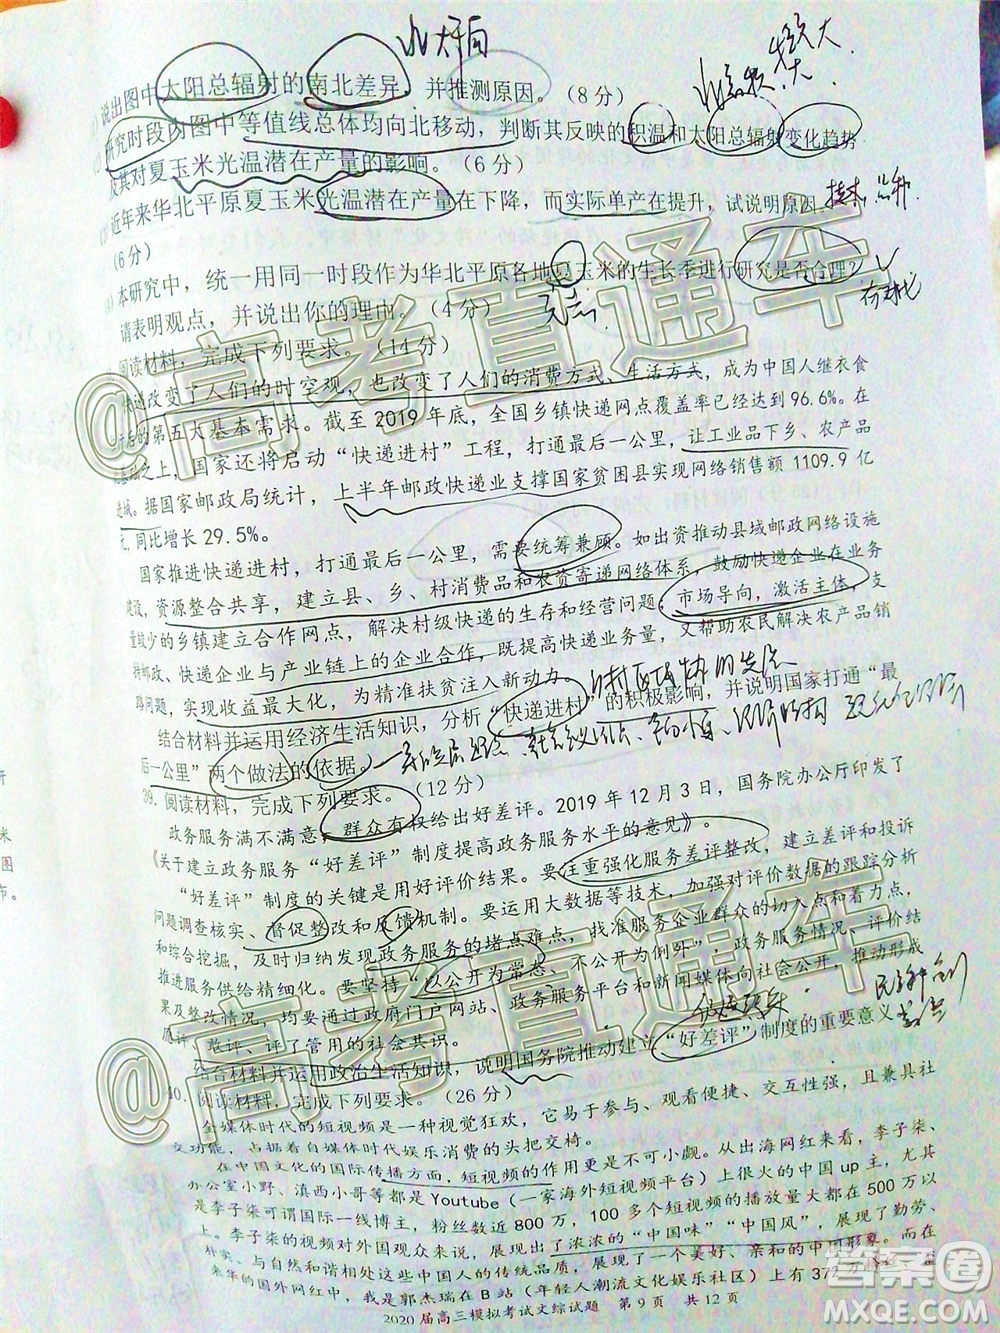 说出图中太阳总辐射的南北差异，并推测原因。（8分）
研究时段内图中等值线总体均向北移动，判断其反映的积温和太阳总辐射变化趋势
及其对夏玉米光温潜在产量的影响。（6分）
近年来华北平原夏玉米光温潜在产量在下降，而实际单产在提升，试说明原因。
（6分）
本研究中，统一用同一时段作为华北平原各地夏玉米的生长季进行研究是否合理？
请表明观点，并说出你的理由。（4分）
阅读材料，完成下列要求。（14分）
快递改变了人们的时空观，也改变了人们的消费方式、生活方式，成为中国人继衣食
的第五大基本需求。截至2019年底，全国乡镇快递网点覆盖率已经达到96.6%。在
基础之上，国家还将启动“快递进村”工程，打通最后一公里，让工业品下乡、农产品
进城。据国家邮政局统计，上半年邮政快递业支撑国家贫困县实现网络销售额1109.9亿
元，同比增长29.5%。
国家推进快递进村，打通最后一公里，需要统筹兼顾。如出资推动县域邮政网络设施
建设，资源整合共享，建立县、乡、村消费品和农资寄递网络体系，鼓励快递企业在业务
量较少的乡镇建立合作网点，解决村级快递的生存和经营问题；市场导向，激活主体，支
持邮政、快递企业与产业链上的企业合作，既提高快递业务量，又帮助农民解决农产品销
路问题，实现收益最大化，为精准扶贫注入新动力。
结合材料并运用经济生活知识，分析“快递进村”的积极影响，并说明国家打通“最
后一公里”两个做法的依据。
39.阅读材料，完成下列要求。（12分）
政务服务满不满意，群众有权给出好差评。2019年12月3日，国务院办公厅印发了
《关于建立政务服务“好差评”制度提高政务服务水平的意见》。
“好差评”制度的关键是用好评价结果。要注重强化服务差评整改，建立差评和投诉
问题调查核实、督促整改和反馈机制。要运用大数据等技术，加强对评价数据的跟踪分析
和综合挖掘，及时归纳发现政务服务的堵点难点，找准服务企业群众的切入点和着力点，
推进服务供给精细化。要坚持“以公开为常态、不公开为例外”，政务服务情况、评价结
果及整改情况，均要通过政府门户网站、政务服务平台和新闻媒体向社会公开，推动形成
愿评、敢评、评了管用的社会共识。
结合材料并运用政治生活知识，说明国务院推动建立“好差评”制度的重要意义。
40.阅读材料，完成下列要求。（26分）
全媒体时代的短视频是一种视觉狂欢，它易于参与、观看便捷、交互性强，且兼具社
交功能，占据着自媒体时代娱乐消费的头把交椅。
在中国文化的国际传播方面，短视频的作用更是不可小觑。从出海网红来看，李子柒、
办公室小野、滇西小哥等都是Youtube（一家海外短视频平台）上很火的中国up主，尤其
是李子柒可谓国际一线博主，粉丝数近800万，100多个短视频的播放量大都在500万以
上。李子柒的视频对外国观众来说，展现出了浓浓的“中国味”“中国风”，展现了勤劳、
朴实、与自然和谐相处这些中国人的优良传统，展现了一个美好、亲和的中国形象。而在
来华的国外网红中，我是郭杰瑞在B站（年轻人潮流文化娱乐社区）上有37
2020届高三模拟考试文综试题 第9页 共12页
@高考直通车
@高考直通车
答案圈
MXQE.COM